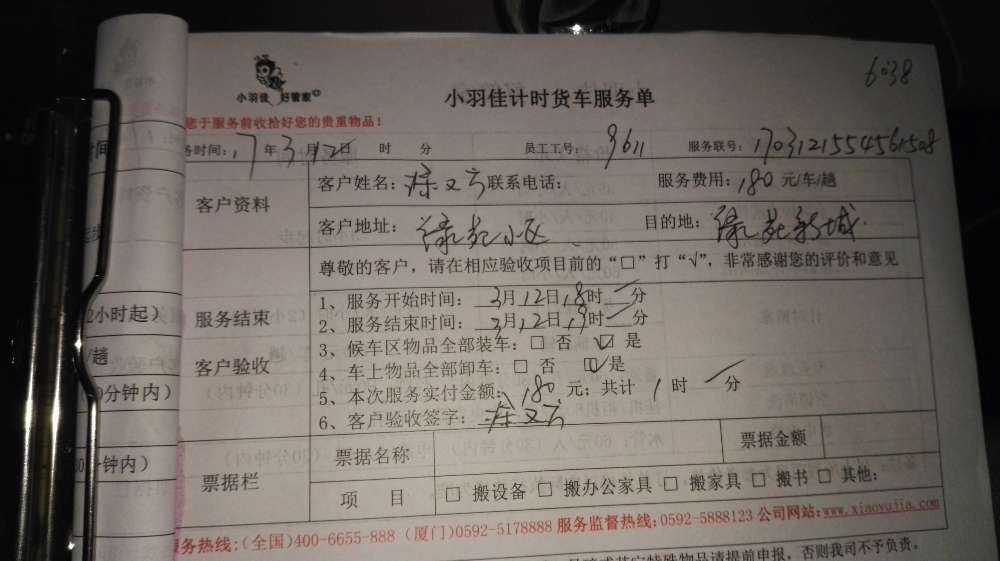 6038
小羽佳 好管家
小羽佳计时货车服务单
您于服务前收拾好您的贵重物品！
务时间：17年3月12日 时 分 员工工号：9611 服务联号：1703121554561508
客户资料
客户姓名： 又方 联系电话： 服务费用：180元/车/趟
客户地址：绿苑小区 目的地：绿苑新城
尊敬的客户，请在相应验收项目前的“□”打“√”，非常感谢您的评价和意见
服务结束
客户验收
1、服务开始时间：3月12日18时 分
2、服务结束时间：3月12日19时 分
3、候车区物品全部装车：□ 否 ☑ 是
4、车上物品全部卸车：□ 否 ☑ 是
5、本次服务实付金额：180元；共计1时 分
6、客户验收签字： 又方
票据栏
票据名称 票据金额
项 目 □ 搬设备 □ 搬办公家具 □ 搬家具 □ 搬书 □ 其他：
服务热线：(全国)400-6655-888（厦门)0592-5178888 服务监督热线：0592-5888123 公司网站：www.xiaoyujia.com
特殊物品请提前申报，否则我司不予负责。
2小时起）
/趟
0分钟内）
分钟内）